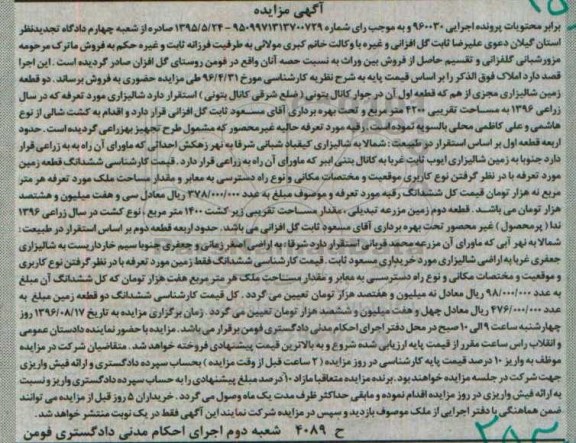 آگهی مزایده
برابر محتویات پرونده اجرایی ۹۶۰۰۳۰ و به موجب رای شماره ۹۵۰۹۹۷۱۳۱۳۷۰۰۷۲۹ - ۱۳۹۵/۵/۲۴ صادره از شعبه چهارم دادگاه تجدیدنظر
استان گیلان دعوی علیرضا ثابت گل افزانی و غیره با وکالت خانم کبری مولائی به طرفیت فرزانه ثابت و غیره حکم به فروش ماترک مرحومه
مزورشبانی گلفزانی و تقسیم حاصل از فروش بین وراث به نسبت حصه آنان واقع در فومن روستای گل افزان صادر گردیده است. این اجرا
قصد دارد املاک فوق الذکر را بر اساس قیمت پایه به شرح نظریه کارشناسی مورخ ۹۶/۴/۳۱ طی مزایده حضوری به فروش برساند. دو قطعه
زمین شالیزاری مجزی از هم که قطعه اول آن در جوار کانال بتونی (ضلع شرقی کانال بتونی) استقرار دارد شالیزاری مورد تعرفه که در سال
زراعی ۱۳۹۶ به مساحت تقریبی ۴۲۰۰ متر مربع و تحت بهره برداری آقای مسعود ثابت گل افزانی قرار دارد و اقدام به کشت شالی از نوع
هاشمی و علی کاظمی محلی بالسویه نموده است. رقبه مورد تعرفه حالیه غیر محصور که مشمول طرح تجهیز بهزراعی گردیده است. حدود
اربعه قطعه اول بر اساس استقرار در طبیعت: شمالا به شالیزاری کیقباد شبانی شرقا به نهر زهکش احداثی که ماورای آن راه به به زراعی قرار
دارد جنوبا به زمین شالیزاری ایوب ثابت غربا به کانال بتنی ابیر که ماورای آن راه به زراعی قرار دارد. قیمت کارشناسی ششدانگ قطعه زمین
مورد تعرفه با در نظر گرفتن نوع کاربری موقعیت و مختصات مکانی و نوع راه دسترسی به معابر و مقدار مساحت ملک مورد تعرفه هر متر
مربع نه هزار تومان قیمت کل ششدانگ رقبه مورد تعرفه و موصوف مبلغ به عدد ۳۷۸/۰۰۰/۰۰۰ ریال معادل سی و هفت میلیون و هشتصد
هزار تومان می باشد. قطعه دوم زمین مزرعه تبدیلی، مقدار مساحت تقریبی زیر کشت ۱۴۰۰ متر مربع، نوع کشت در سال زراعی ۱۳۹۶
ندا (پر محصول) غیر محصور تحت بهره برداری آقای مسعود ثابت گل افزانی می باشد. حدود اربعه قطعه دوم بر اساس استقرار در طبیعت:
شمالا به نهر آبی که ماورای آن مزرعه محمد قربانی استقرار دارد شرقا: به اراضی اصغر زمانی و جعفری جنوبا سیم خارداریست به شالیزاری
جعفری غربا به اراضی شالیزاری مورد خریداری مسعود ثابت. قیمت کارشناسی ششدانگ فقط زمین مورد تعرفه با در نظر گرفتن نوع کاربری
و موقعیت و مختصات مکانی و نوع راه دسترسی به معابر و مقدار مساحت ملک هر متر مربع هفت هزار تومان که کل ششدانگ آن مبلغ
به عدد ۹۸/۰۰۰/۰۰۰ ریال معادل نه میلیون و هفتصد هزار تومان تعیین می گردد. کل قیمت کارشناسی ششدانگ دو قطعه زمین مبلغ به
عدد ۴۷۶/۰۰۰/۰۰۰ ریال معادل چهل و هفت میلیون و ششصد هزار تومان تعیین می گردد. زمان برگزاری مزایده به تاریخ ۱۳۹۶/۰۸/۱۷ روز
چهارشنبه ساعت ۹ الی ۱۰ صبح در محل دفتر اجرای احکام مدنی دادگستری فومن برقرار می باشد. مزایده با حضور نماینده دادستان عمومی
و انقلاب راس ساعت مقرر از قیمت پایه ارزیابی شده شروع و به بالاترین قیمت پیشنهادی فروخته خواهد شد. متقاضیان شرکت در مزایده
موظف به واریز ۱۰ درصد قیمت پایه کارشناسی در روز مزایده (۲ ساعت قبل از وقت مزایده) بحساب سپرده دادگستری و ارائه فیش واریزی
جهت شرکت در جلسه مزایده خواهند بود. برنده مزایده متعاقبا مازاد ۱۰ درصد مبلغ پیشنهادی را به حساب سپرده دادگستری واریز و نسبت
به ارائه فیش واریزی در روز مزایده اقدام نموده و مابقی حداکثر ظرف مدت یک ماه وصول می گردد. خریداران ۵ روز قبل از مزایده می توانند
ضمن هماهنگی با دفتر اجرایی از ملک موصوف بازدید و سپس در مزایده شرکت نمایند این آگهی فقط در یک نوبت منتشر خواهد شد.
ح ۴۰۸۹ شعبه دوم اجرای احکام مدنی دادگستری فومن